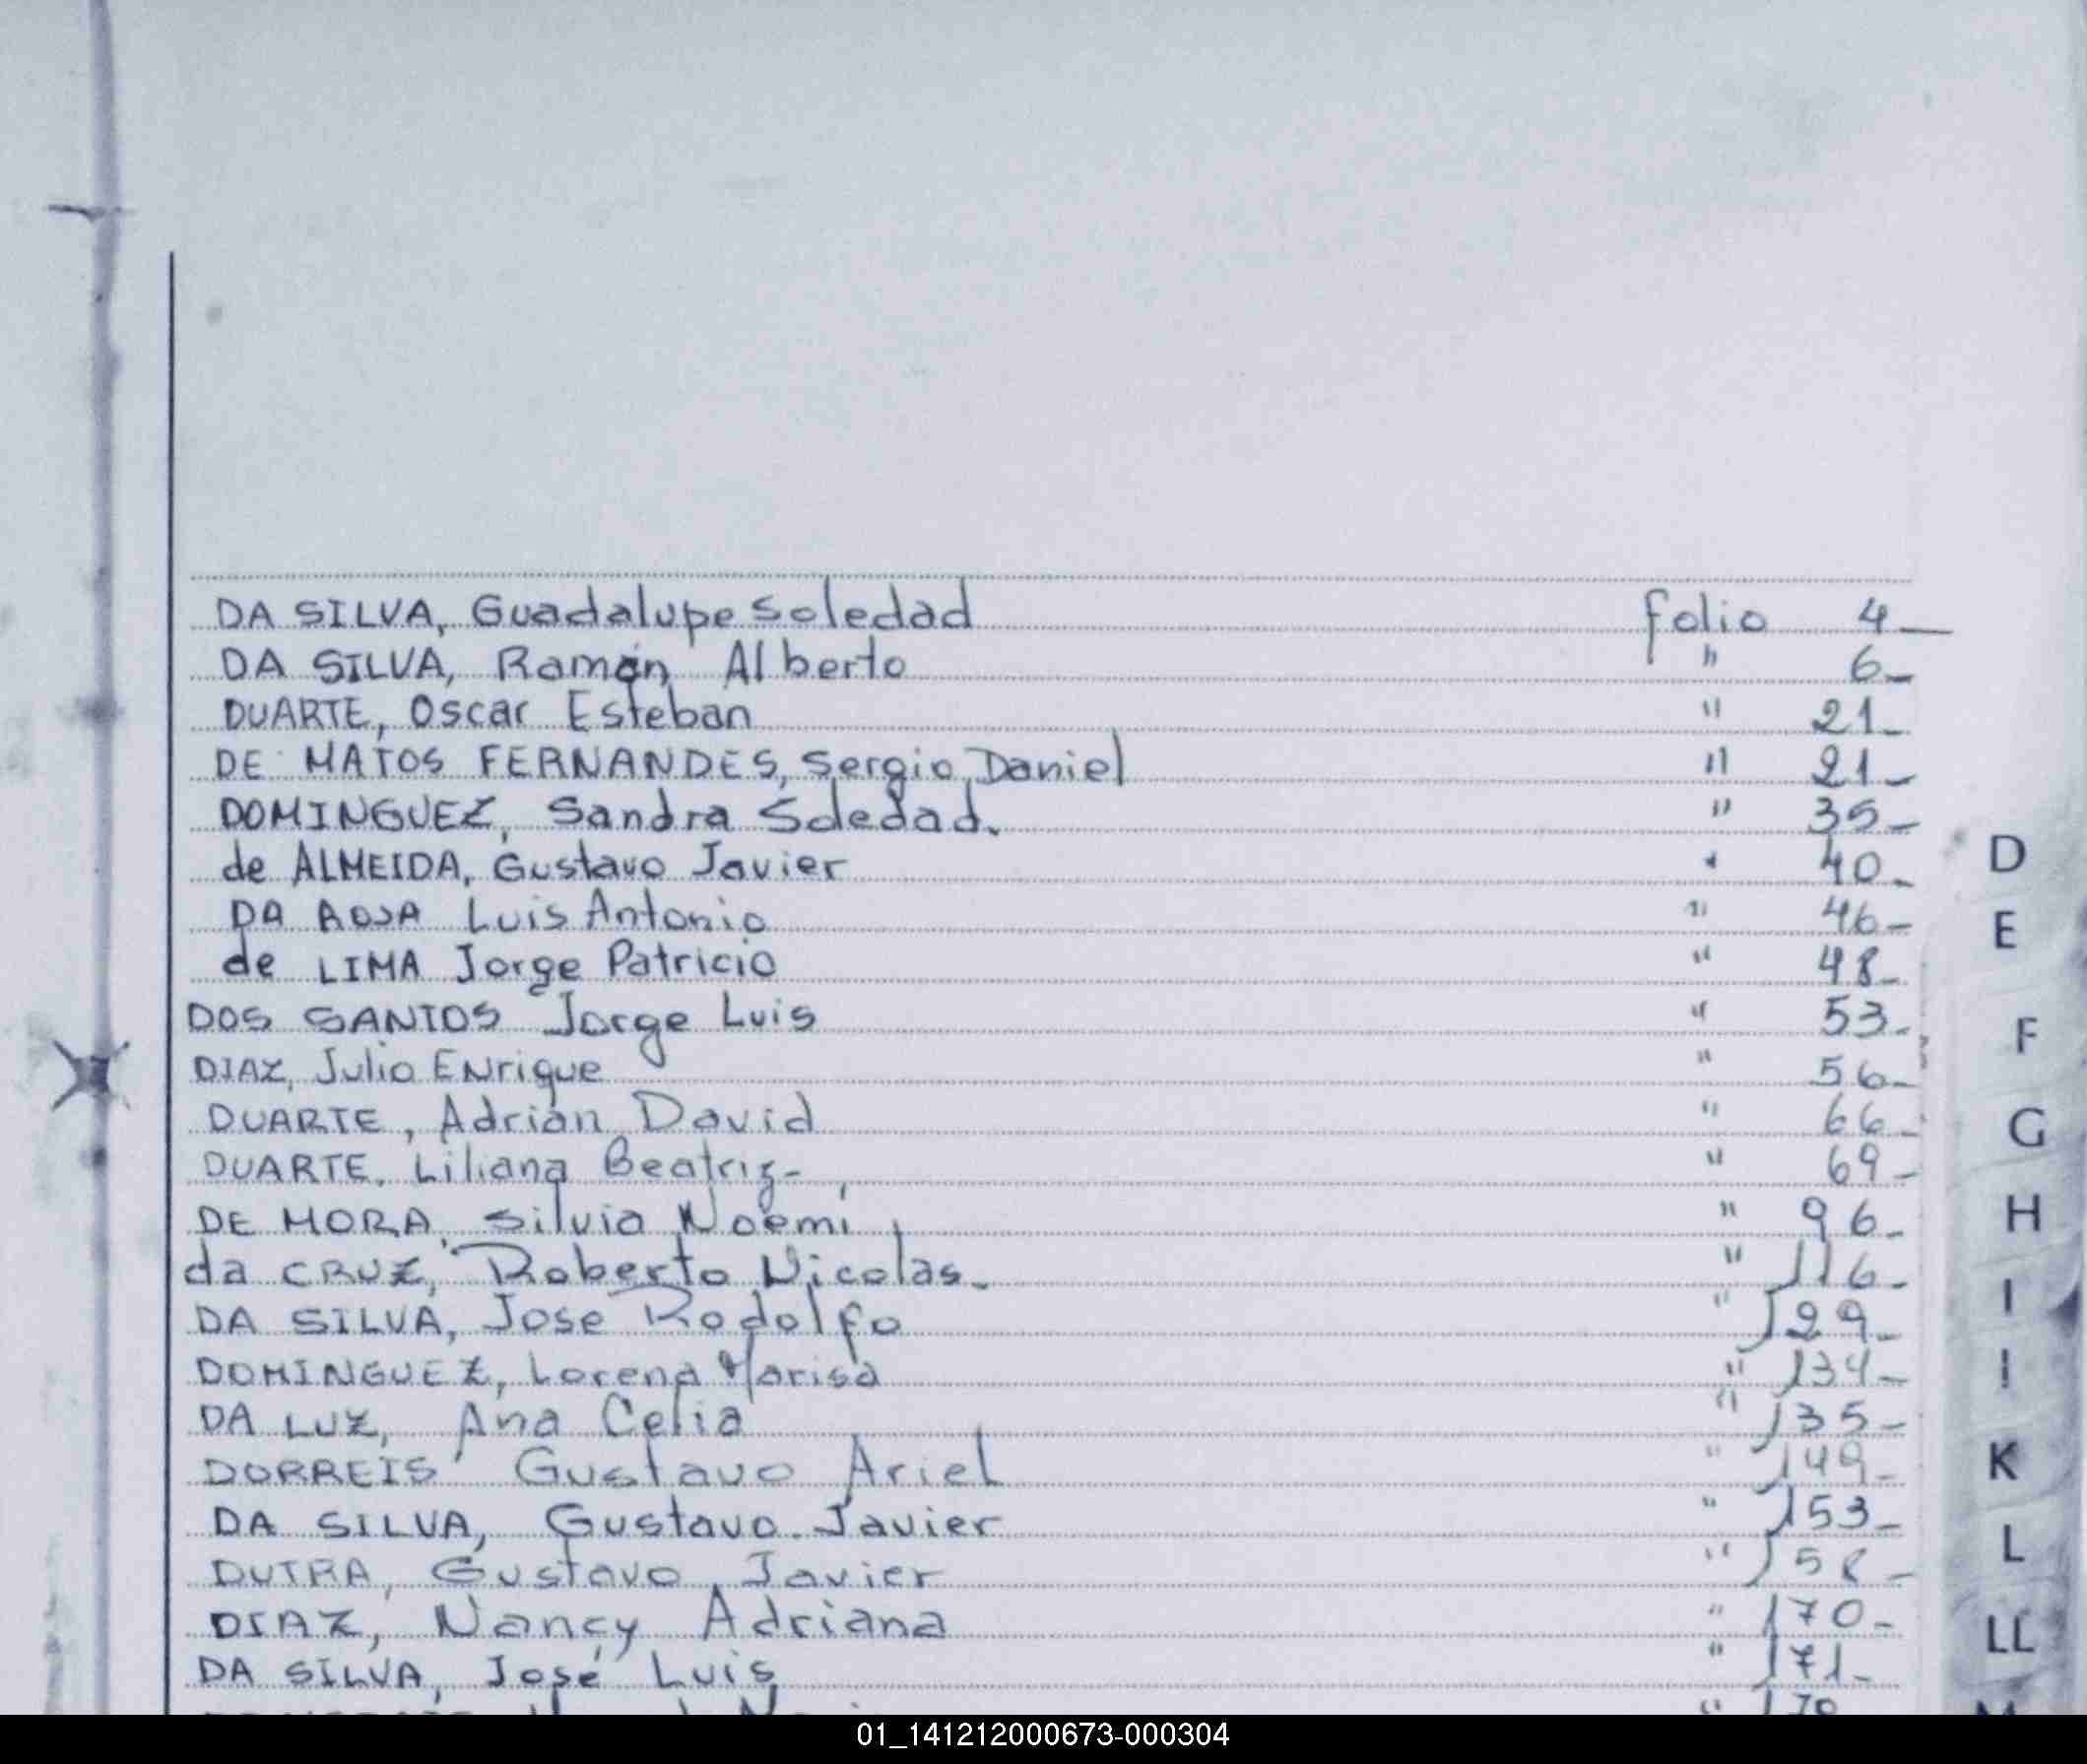 DA SILVA, Guadalupe Soledad folio 4_
DA SILVA, Ramón Alberto " 6_
DUARTE, Oscar Esteban " 21_
DE MATOS FERNANDES, Sergio Daniel " 21_
DOMINGUEZ, Sandra Soledad. " 35_
de ALMEIDA, Gustavo Javier " 40_
DA Luis Antonio " 46_
de LIMA Jorge Patricio " 48_
DOS SANTOS Jorge Luis " 53_
DIAZ, Julio ENrique " 56_
DUARTE, Adrián David " 66_
DUARTE, Liliana Beatriz_ " 69_
DE MORA, Silvia Noemí " 96_
da CRUZ, Roberto Nicolas_ " 116_
DA SILVA, Jose Rodolfo " 129_
DOMINGUEZ, Lorena Marisa " 134_
DA LUZ, Ana Celia " 135_
DORREIS Gustavo Ariel " 149_
DA SILVA, Gustavo Javier " 153_
DUTRA, Gustavo Javier " 158_
DIAZ, Nancy Adriana " 170_
DA SILVA, José Luis " 171_
D
E
F
G
H
I
I
K
L
LL
01_141212000673-000304